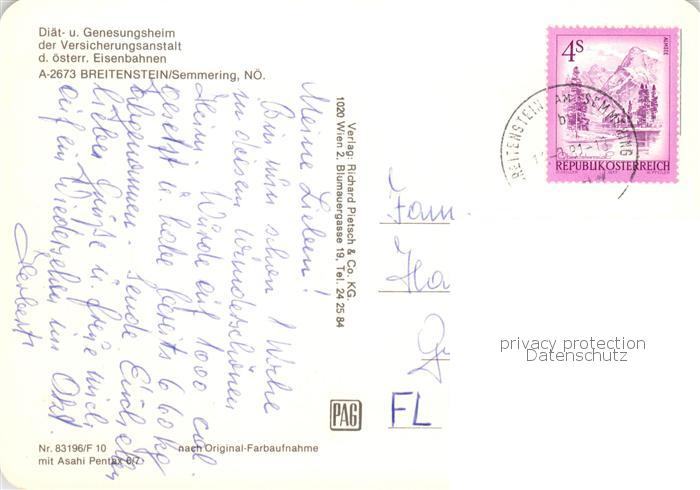 Diät- u. Genesungsheim
der Versicherungsanstalt
d. österr. Eisenbahnen
A-2673 BREITENSTEIN/Semmering, NÖ.
Meine Lieben!
Bin nun schon 1 Woche
in diesem wunderschönen
Heim. Wurde auf 1000 cal.
gesetzt u. habe bereits 6.60 kg
abgenommen. Sende Euch allen
liebe Grüße u. freue mich
auf ein Wiedersehen im Okt.
Herbert
Verlag: Richard Pietsch & Co. KG.
1020 Wien 2, Blumauergasse 19, Tel. 24 25 84
4S
ALMSEE
REPUBLIK ÖSTERREICH
BREITENSTEIN AM SEMMERING
Fam.
Ha
FL
privacy protection
Datenschutz
PAG
Nr. 83196/F 10 nach Original-Farbaufnahme
mit Asahi Pentax 6/7